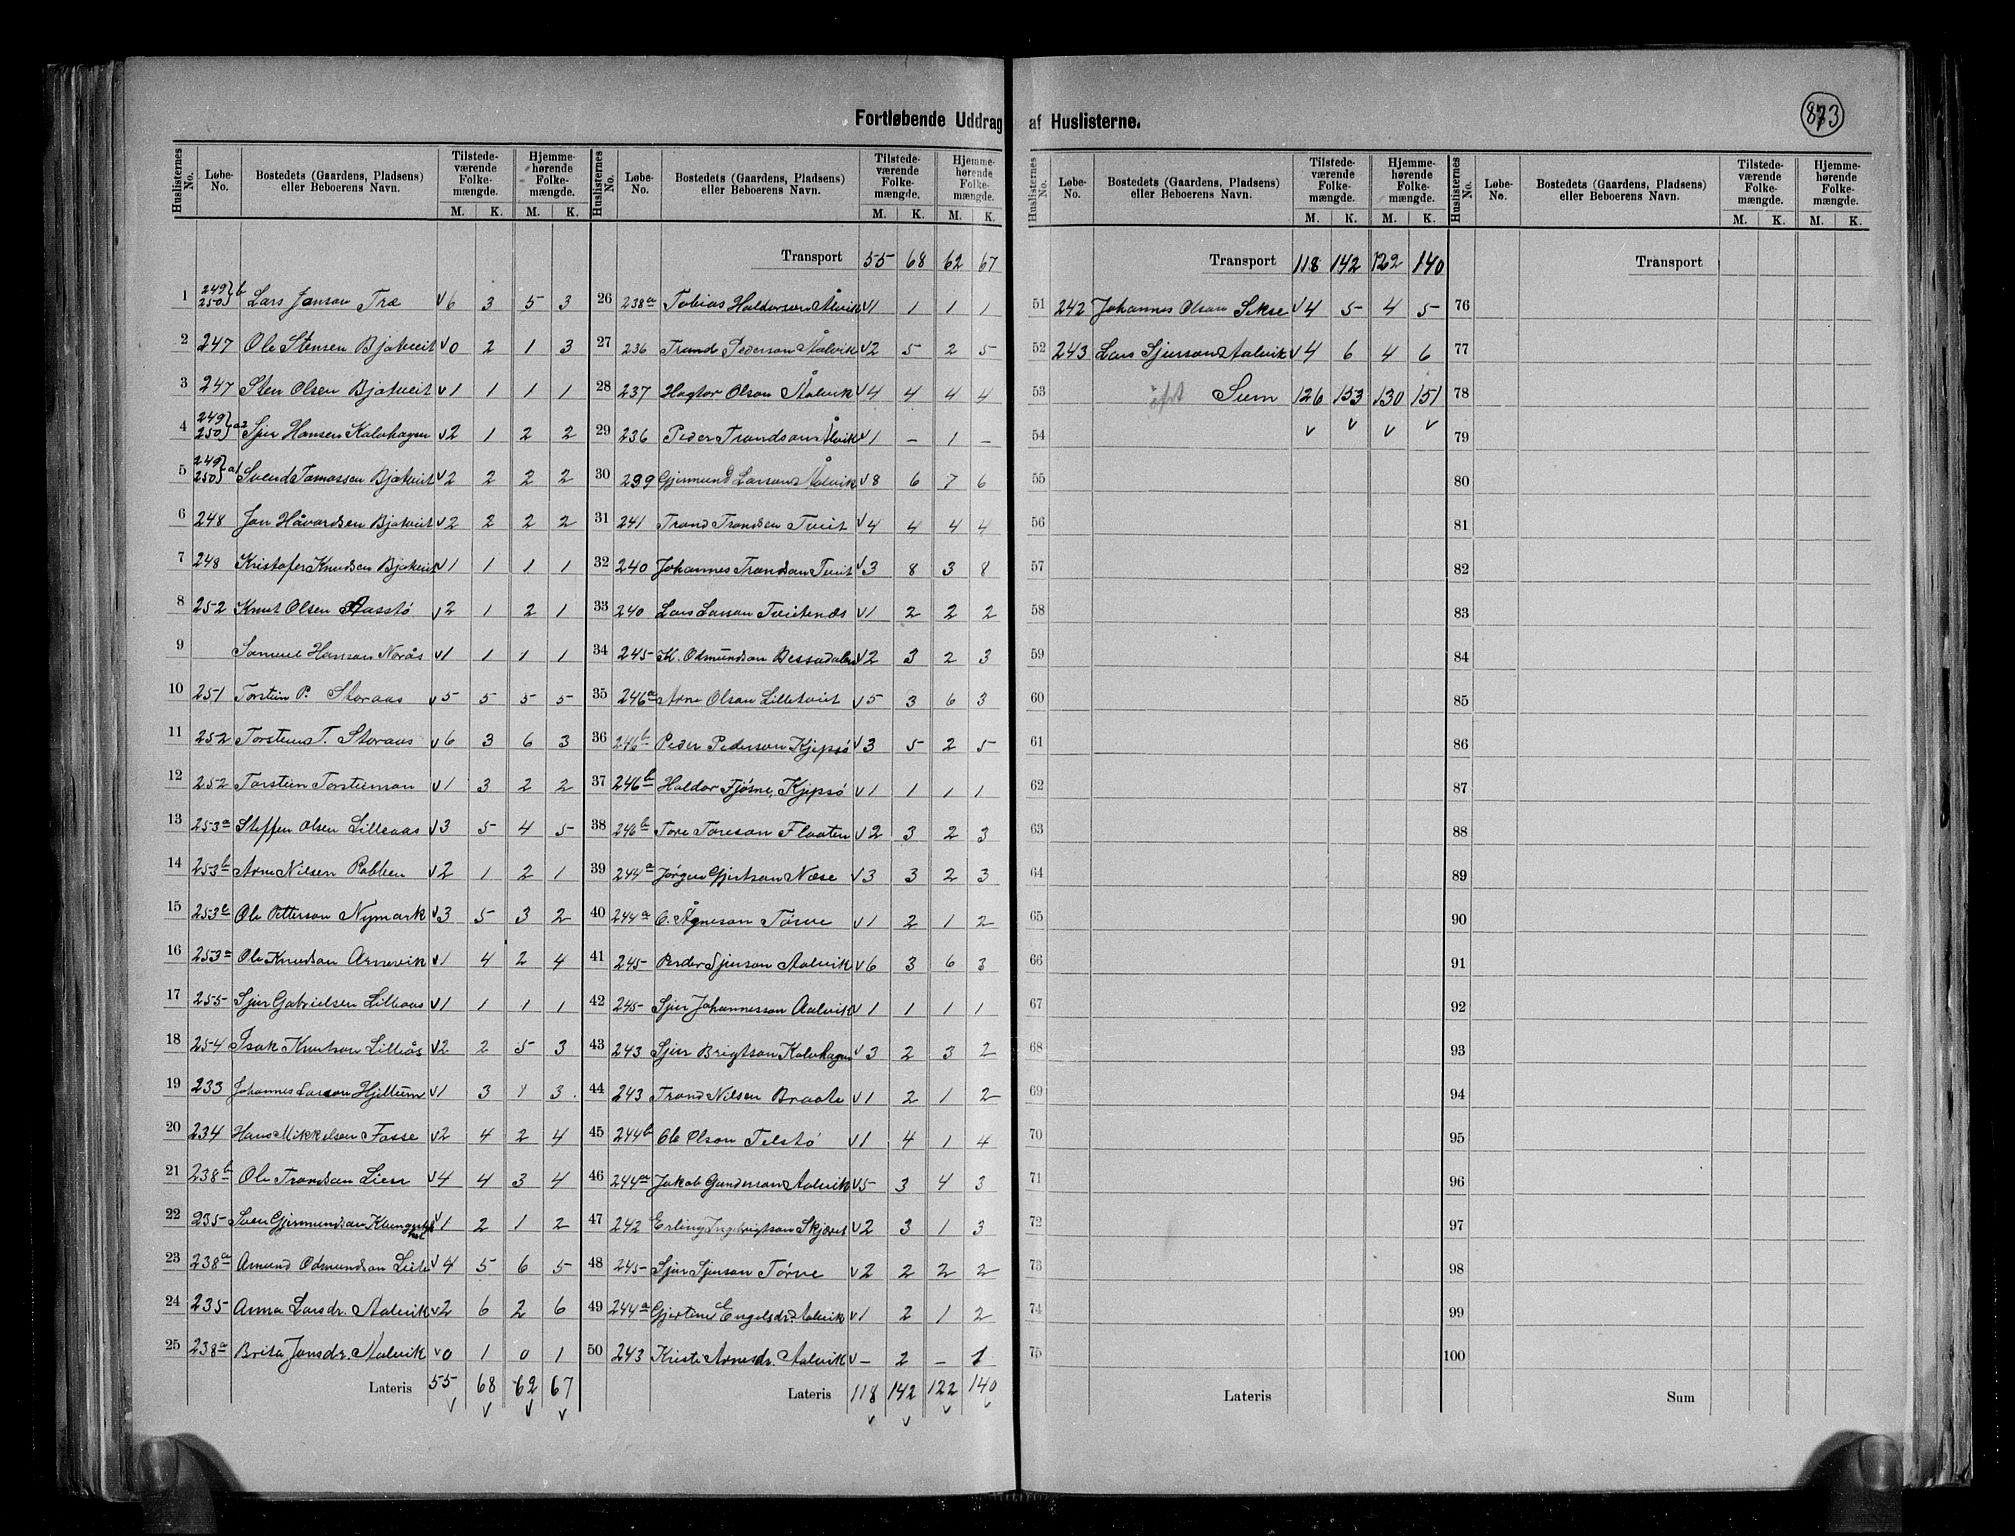 Fortløbende Uddrag af Huslisterne.
873
Huslisternes No. Løbe-No. Bostedets (Gaardens, Pladsens) eller Beboerens Navn. Tilstedeværende Folkemængde. M. K. Hjemmehørende Folkemængde. M. K.
1 249 250 b Lars Janson Træ V 6 3 5 3
2 247 Ole Stensen Bjotveit V 0 2 1 3
3 247 Sten Olsen Bjotveit V 1 1 1 1
4 249 250 a2 Sjur Hansen Kalvhagen V 2 1 2 2
5 249 250 a1 Svend Tomassen Bjotveit V 2 2 2 2
6 248 Jon Håvardsen Bjotveit V 2 2 2 2
7 248 Kristofer Knudsen Bjotveit V 1 1 1 1
8 252 Knut Olsen Aasstø V 2 1 2 1
9 Samuel Hanson Norås V 1 1 1 1
10 251 Torstein P. Storaas V 5 5 5 5
11 252 Torstein T. Storaas V 6 3 6 3
12 252 Torstein Torsteinson V 1 3 2 2
13 253a Steffen Olsen Lilleaas V 3 5 4 5
14 253b Arne Nilsen Robben V 2 1 2 1
15 253b Ole Petterson Nymark V 3 5 3 2
16 253a Ole Knudson Arnevik V 1 4 2 4
17 255 Sjur Gabrielsen Lilleaas V 1 1 1 1
18 254 Isak Knutson Lilleås V 2 2 5 3
19 233 Johannes Larson Hjeltum V 1 3 1 3
20 234 Hans Mikkelsen Fosse V 2 4 2 4
21 238b Ole Trondson Lien V 4 4 3 4
22 235 Sven Gjermundson V 1 2 1 2
23 238a Amund Odmundson Leite V 4 5 6 5
24 235 Anna Larsdr. Aalvik V 2 6 2 6
25 238a Brita Jonsdr. Aalvik V 0 1 0 1
Lateris 55 68 62 67
V V V V
Huslisternes No. Løbe-No. Bostedets (Gaardens, Pladsens) eller Beboerens Navn. Tilstedeværende Folkemængde. M. K. Hjemmehørende Folkemængde. M. K.
Transport 55 68 62 67
26 238a Tobias Haldorson Ålvik V 1 1 1 1
27 236 Trond Pederson Aalvik V 2 5 2 5
28 237 Hagtor Olson Ålvik V 4 4 4 4
29 236 Peder Trondson Ålvik V 1 – 1 –
30 239 Gjermund Larson Aalvik V 8 6 7 6
31 241 Trond Trondsen Tveit V 4 4 4 4
32 240 Johannes Trondson Tveit V 3 8 3 8
33 240 Lars Larson Tveitenæs V 1 2 2 2
34 245 K. Odmundson Bessadalen V 2 3 2 3
35 246a Arne Olson Lilletveit V 5 3 6 3
36 246b Peder Pederson Kjepsø V 3 5 2 5
37 246b Haldor Fjøsne, Kjepsø V 1 1 1 1
38 246b Tore Toreson Flaaten V 2 3 2 3
39 244a Jørgen Gjertson Næse V 3 3 2 3
40 244a O. Ågneson Tørve V 1 2 1 2
41 245 Peder Sjurson Aalvik V 6 3 6 3
42 245 Sjur Johannesson Aalvik V 1 1 1 1
43 243 Sjur Brigtson Kalvhagen V 3 2 3 2
44 243 Trond Nilsen Braate V 1 2 1 2
45 244b Ole Olson Telstø V 1 4 1 4
46 244a Jakob Gunderson Aalvik V 5 3 4 3
47 242 Erling Ingebrigtson Skjæret V 2 3 1 3
48 245 Sjur Sjurson Tørve V 2 2 2 2
49 244a Gjertine Engelsdr. Aalvik V 1 2 1 2
50 243 Kristi Arnesdr. Aalvik V – 2 – 1
Lateris 118 142 122 140
V V V V
Huslisternes No. Løbe-No. Bostedets (Gaardens, Pladsens) eller Beboerens Navn. Tilstedeværende Folkemængde. M. K. Hjemmehørende Folkemængde. M. K.
Transport 118 142 122 140
51 242 Johannes Olson Sekse V 4 5 4 5
52 243 Lars Sjurson Aalvik V 4 6 4 6
53 Sum 126 153 130 151
54 V V V V
55
56
57
58
59
60
61
62
63
64
65
66
67
68
69
70
71
72
73
74
75
Lateris
Huslisternes No. Løbe-No. Bostedets (Gaardens, Pladsens) eller Beboerens Navn. Tilstedeværende Folkemængde. M. K. Hjemmehørende Folkemængde. M. K.
Transport
76
77
78
79
80
81
82
83
84
85
86
87
88
89
90
91
92
93
94
95
96
97
98
99
100
Sum